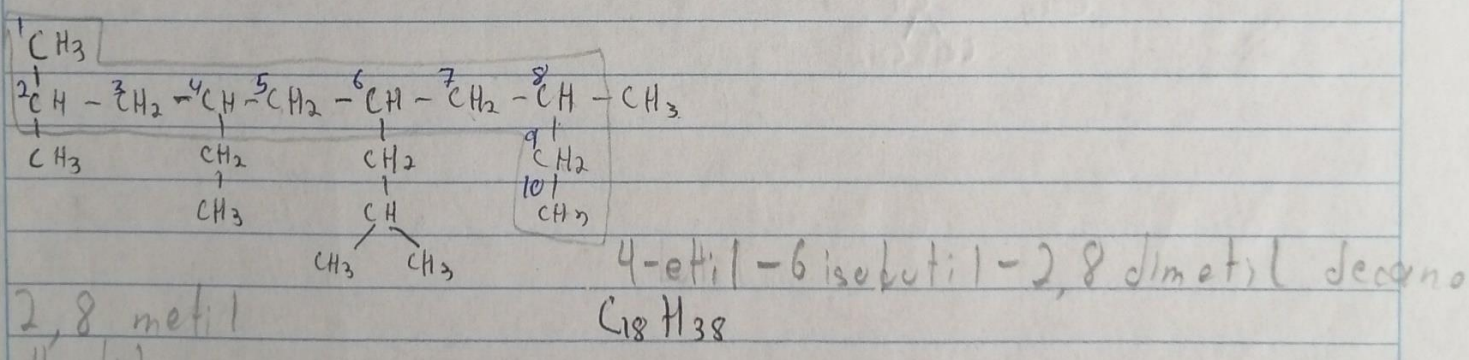 1 CH3
2 CH - 3 CH2 - 4 CH - 5 CH2 - 6 CH - 7 CH2 - 8 CH - CH3
CH3 CH2 CH2 9 CH2
CH3 CH 10 CH3
CH3 CH3
4-etil-6 isobutil-2,8 dimetil decano
2,8 metil
C18 H38